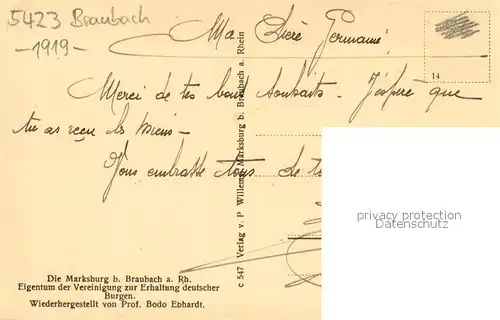 5423 Braubach
-1919-
Ma Chère Germaine!
14
Merci de tes bons souhaits - J'espère que
tu as reçu les miens -
Vous embrasse tous de
c 547 Verlag v. P Willems, Marksburg b. Braubach a. Rhein
privacy protection
Datenschutz
Die Marksburg b. Braubach a. Rh.
Eigentum der Vereinigung zur Erhaltung deutscher
Burgen.
Wiederhergestellt von Prof. Bodo Ebhardt.